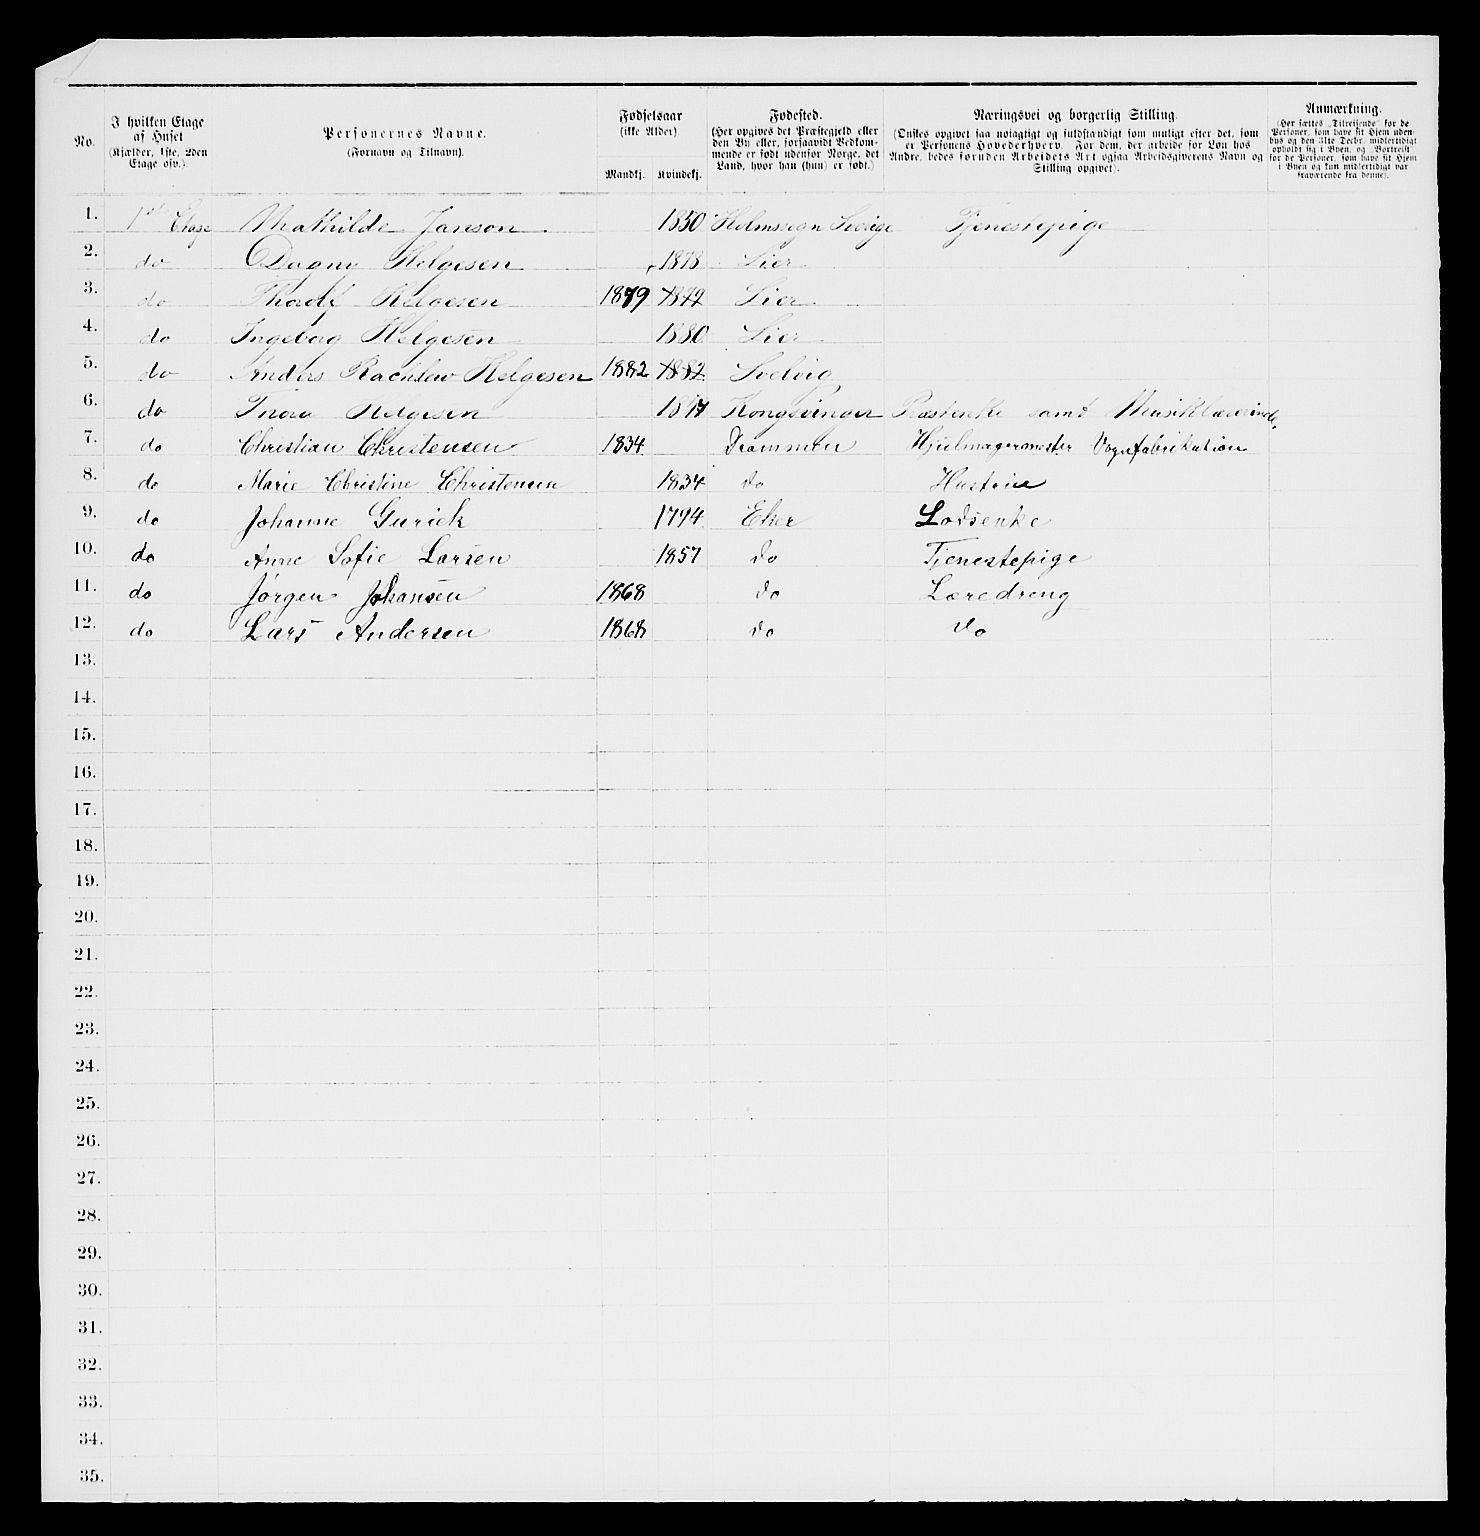 No.
I hvilken Etage af Huset (Kjælder, 1ste, 2den Etage osv.).
Personernes Navne. (Fornavn og Tilnavn).
Fødselsaar (ikke Alder)
Mandkj. Kvindekj.
Fødested. (Her opgives det Præstegjeld eller den By eller, forsaavidt Vedkommende er født udenfor Norge, det Land, hvor han (hun) er født.)
Næringsvei og borgerlig Stilling. (Ønskes opgivet saa nøiagtigt og fuldstændigt som muligt efter det, som er Personens Hovederhverv. For dem, der arbeide for Løn hos Andre, bedes foruden Arbeidets Art ogsaa Arbeidsgiverens Navn og Stilling opgivet).
Anmærkning. (Her sættes „Tilreisende“ for de Personer, som have sit Hjem udenbys og den 31te Decbr. midlertidigt opholdt sig i Byen, og „Bortreist“ for de Personer, som have sit Hjem i Byen og kun midlertidigt var fraværende fra denne).
1. 1ste Etage Mathilde Janson 1850 Holmssogn Sverige Tjenestepige
2. do Dagny Helgesen 1878 Lier
3. do Thoolf Helgesen 1879 1879 Lier
4. do Ingeborg Helgesen 1880 Lier
5. do Anders Rachlew Helgesen 1882 1882 Svelvig
6. do Thora Helgesen Kongsvinger Præstenke samt Musiklærerinde
7. do Christian Christensen 1834 Drammen Hjulmagermester Vognfabrikation
8. do Marie Christine Christensen 1834 do Hustrue
9. do Johanne Gurick 1794 Eker Lodsenke
10. do Anne Sofie Larsen 1857 do Tjenestepige
11. do Jørgen Johansen 1868 do Læredreng
12. do Lars Andersen 1868 do do
13.
14.
15.
16.
17.
18.
19.
20.
21.
22.
23.
24.
25.
26.
27.
28.
29.
30.
31.
32.
33.
34.
35.